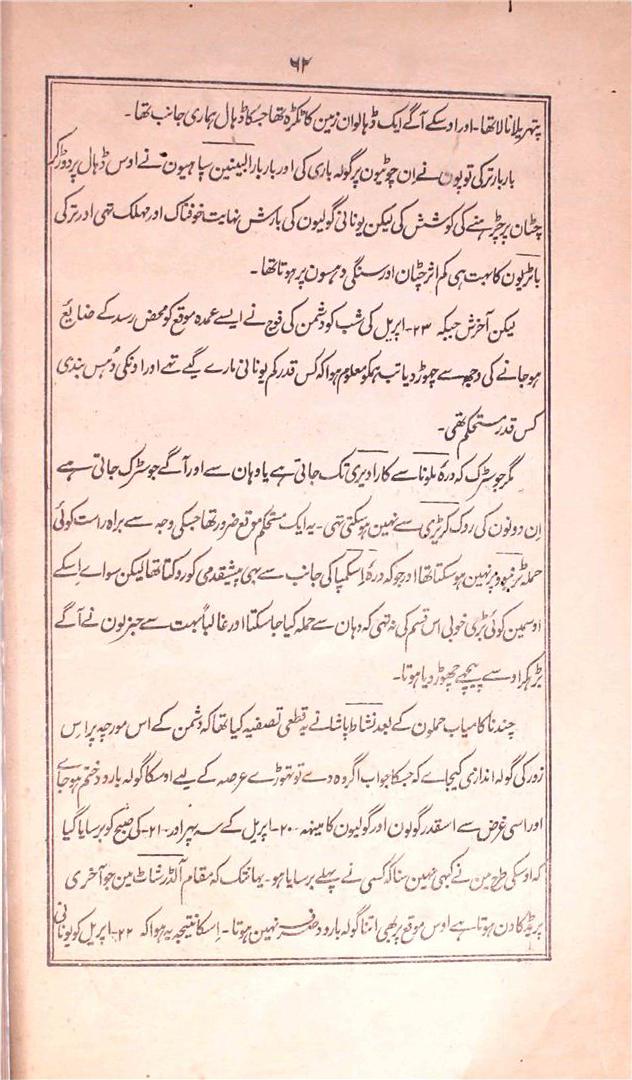 ۶۲
پتھریلا نالا تھا۔ اور اوسکے آگے ایک ڈہالوان زمین کا ٹکڑہ تھا جسکا ڈہال ہماری جانب تھا۔
بار بار ترکی توپون نے اِن چوٹیون پر گولہ باری کی اور بار بار البینین سپاہیون نے اوس ڈہال پر دوڑ کر
چٹان پر چڑہنے کی کوشش کی لیکن یونانی گولیون کی بارش نہایت خوفناک اور مہلک تہی اور ترکی
باٹریون کا بہت ہی کم اثر چٹان اور سنگی دمہسون پر ہوتا تھا۔
لیکن آخرش جبکہ ۲۳۔ اپریل کی شب کو دشمن کی فوج نے ایسے عمدہ موقع کو محض رسد کے ضایع
ہوجانے کی وجہ سے چہوڑ دیا تب ہمکو معلوم ہوا کہ کس قدر کم یونانی مارے گیے تہے اور اونکی دُمہس بندی
کس قدر مستحکم تھی۔
مگر جو سڑک کہ درہ ملونا سے کارادیری تک جاتی ہے یا وہان سے اور آگے جو سڑک جاتی ہے
اِن دونون کی روک کرٹیری سے نہین ہوسکتی تہی۔ یہ ایک مستحکم موقع ضرور تھا جسکی وجہ سے براہ راست کوئی
حملہ ٹرنبوو پر نہین ہوسکتا تھا اور جو کہ درۂ اِسکمپا کی جانب سے بہی پیشقدمی کو روکتا تھا لیکن سواے اِسکے
اوسمین کوئی بڑی خوبی اس قسم کی نہ تہی کہ وہان سے حملہ کیا جاسکتا اور غالباً بہت سے جنرلون نے آگے
بڑہکر اوسے پیچہے چہوڑ دیا ہوتا۔
چند ناکامیاب حملون کے بعد نشاط پاشا نے یہ قطعی تصفیہ کیا تھا کہ دشمن کے اس مورچہ پر اس
زور کی گولہ اندازی کیجاے کہ جسکا جواب اگر وہ دے تو تہوڑے عرصہ کے لیے اوسکا گولہ بارود ختم ہوجاے
اور اسی غرض سے اسقدر گولون اور گولیون کا مینہہ ۲۰۔ اپریل کے سہ پہر اور ۲۱۔ کی صبح کو برسایا گیا
کہ اوسکی طرح مین نے کبہی نہین سنا کہ کسی نے پہلے برسایا ہو۔ یہانتک کہ مقام آلڈرشاٹ مین جو آخری
پریڈ کا دن ہوتا ہے اوس موقع پر بھی اتنا گولہ بارود صرف نہین ہوتا۔ اِسکا نتیجہ یہ ہوا کہ ۲۲۔ اپریل کو یونانی